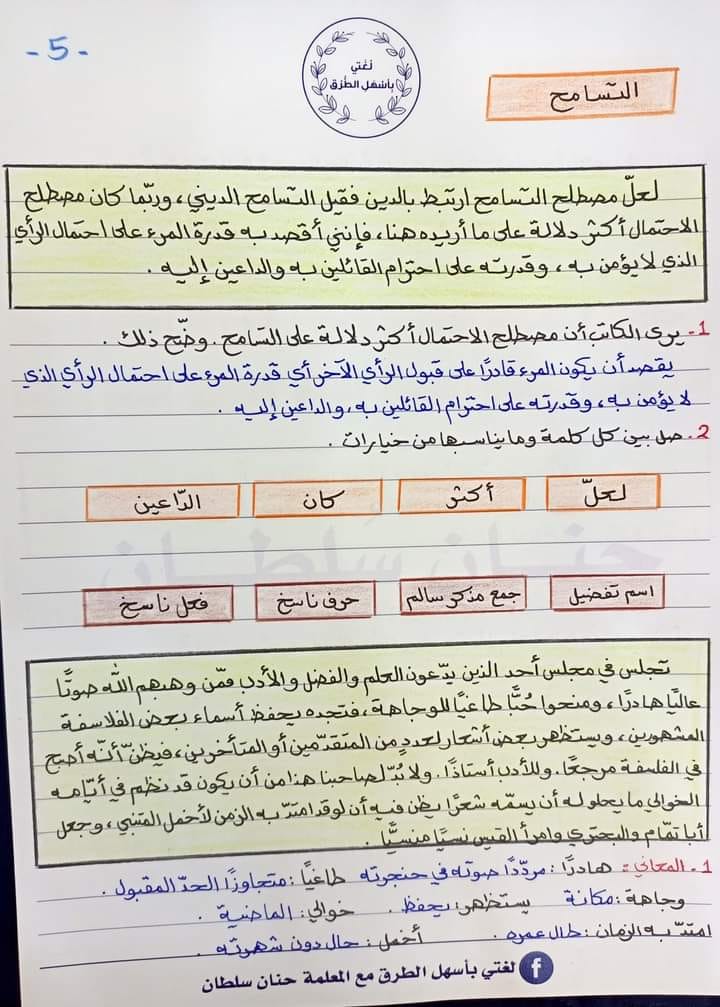 - 5 -
لُغَتي
بِأَسْهَلِ الطُّرُقِ
التسامح
لعلّ مصطلح التسامح ارتبط بالدين فقيل التسامح الديني، وربّما كان مصطلح
الاحتمال أكثر دلالة على ما أريده هنا، فإنني أقصد به قدرة المرء على احتمال الرأي
الذي لا يؤمن به، وقدرته على احترام القائلين به والداعين إليه.
1- يرى الكاتب أن مصطلح الاحتمال أكثر دلالة على التسامح. وضّح ذلك.
يقصد أن يكون المرء قادرًا على قبول الرأي الآخر أي قدرة المرء على احتمال الرأي الذي
لا يؤمن به، وقدرته على احترام القائلين به، والداعين إليه.
2. صل بين كل كلمة وما يناسبها من خيارات.
لعلّ أكثر كان الدّاعين
حنان سلطان
اسم تفضيل جمع مذكر سالم حرف ناسخ فعل ناسخ
تجلس في مجلس أحد الذين يدّعون العلم والفضل والأدب فمّن وهبهم الله صوتًا
عاليًا هادرًا، ومنحوا حُبًّا طاغيًا للوجاهة، فتجده يحفظ أسماء بعض الفلاسفة
المشهورين، ويستظهر بعض أشعار لعددٍ من المتقدّمين أو المتأخرين، فيظنّ أنّه أصبح
في الفلسفة مرجعًا. وللأدب أستاذًا. ولا بُدّ لصاحبنا هذا من أن يكون قد نظم في أيّامه
الخوالي ما يحلو له أن يسمّه شعرًا يظن فيه أن لو قد امتدّ به الزمن لأخمل المتنبي، وجعل
أبا تمّام والبحتري وامرأ القيس نسيًا منسيًّا.
1. المعاني: هادرًا: مردّدًا صوته في حنجرته طاغيًا: متجاوزًا الحدّ المقبول.
وجاهة: مكانة يستظهر: يحفظ. خوالي: الماضية.
امتدّ به الزمان: طال عمره. أخمل: حال دون شهرته.
لغتي بأسهل الطرق مع المعلمة حنان سلطان